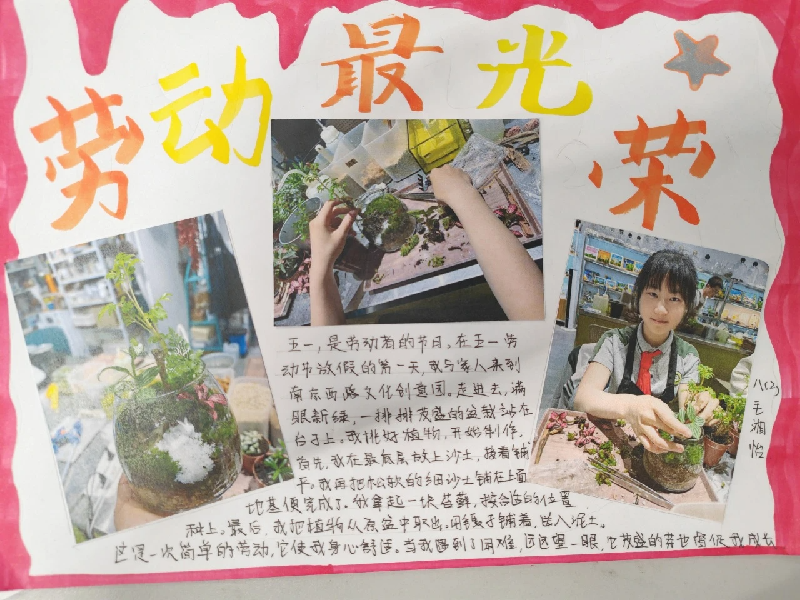 劳动最光荣
五一,是劳动者的节日。在五一劳
动节放假的第一天,我与家人来到
南京西路文化创意园。走进去,满
眼新绿,一排排茂盛的盆栽站在
台子上。我挑好植物,开始制作。
首先,我在最底层放上沙土,接着铺
平。我再把松软的细沙土铺在上面
地基便完成了。我拿起一块苔藓,按合适的位置
种上。最后,我把植物从原盆中取出,用镊子铺着,进入泥土。
这是一次简单的劳动,它使我身心舒适。当我遇到了困难,远远望一眼,它茂盛的芽也督促我成长
八(2)
王湘怡